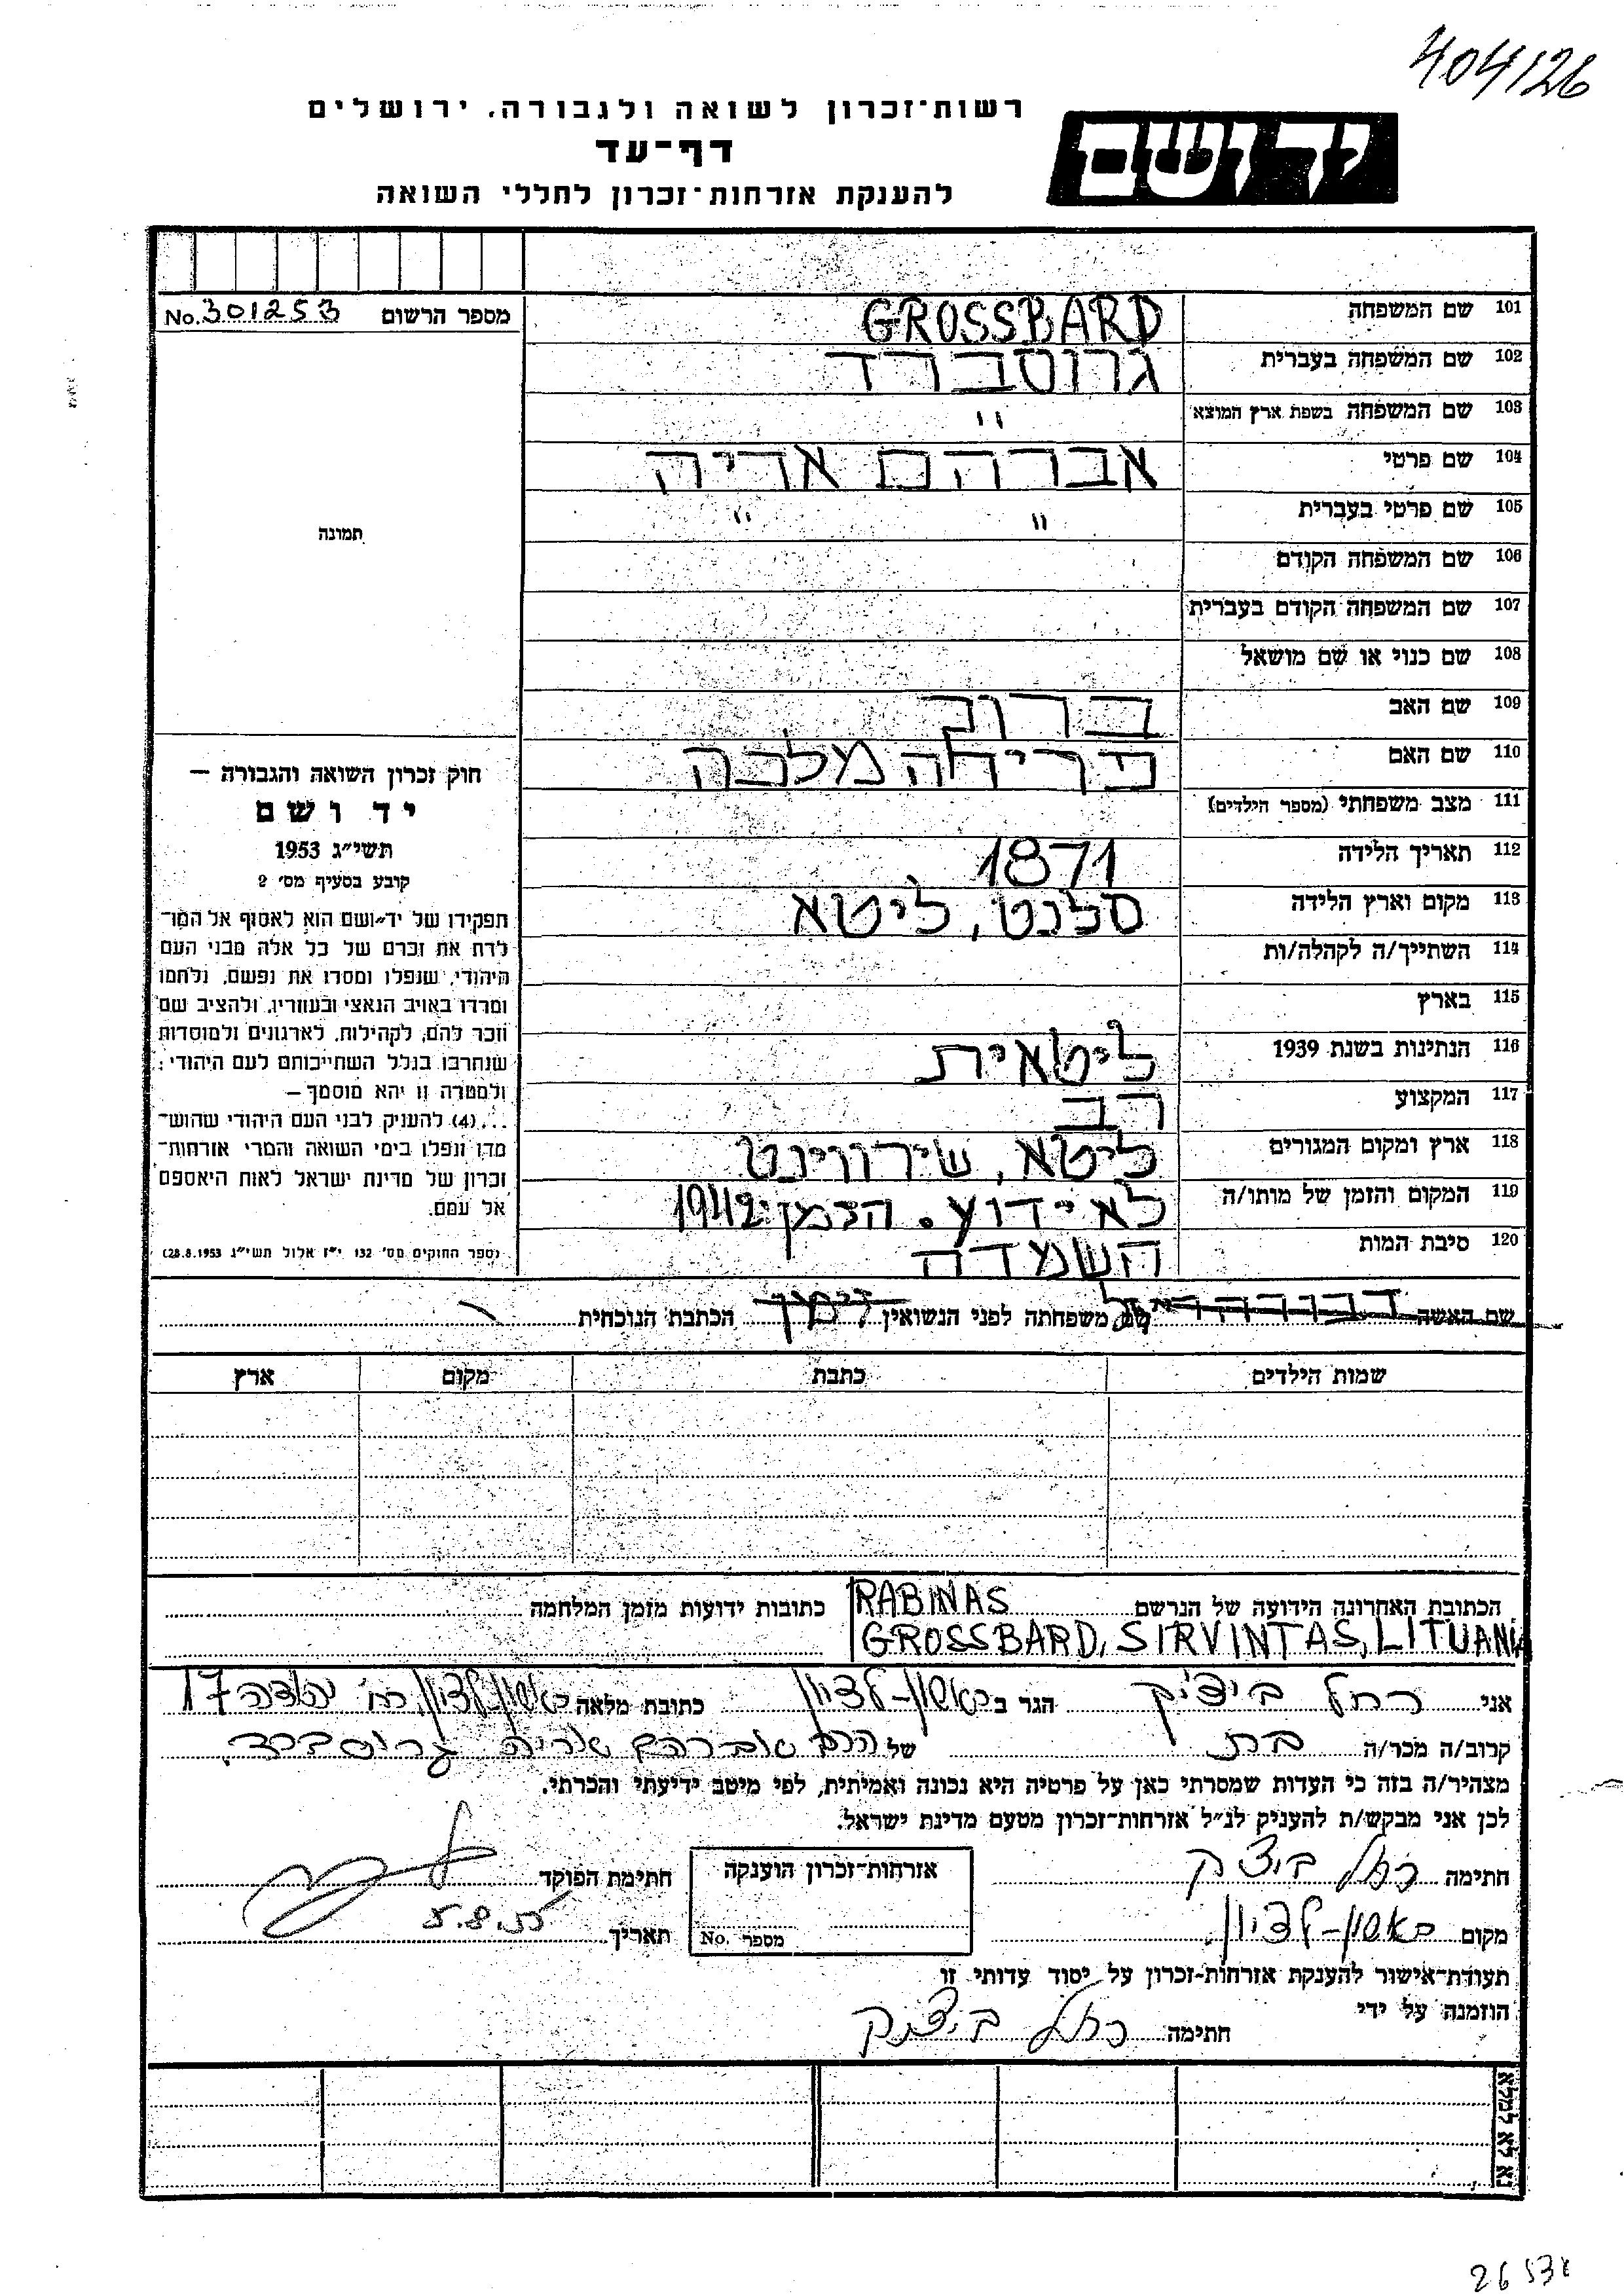 404/26
רשות־זכרון לשואה ולגבורה, ירושלים
דף־עד
להענקת אזרחות־זכרון לחללי השואה
יד ושם
מספר הרשום No. 301253
תמונה
101 שם המשפחה GROSSBARD
102 שם המשפחה בעברית גרוסברד
103 שם המשפחה בשפת ארץ המוצא "
104 שם פרטי אברהם אריה
105 שם פרטי בעברית " "
106 שם המשפחה הקודם
107 שם המשפחה הקודם בעברית
108 שם כנוי או שם מושאל
109 שם האב ברוך
110 שם האם פריחה מלכה
111 מצב משפחתי (מספר הילדים)
112 תאריך הלידה 1871
113 מקום וארץ הלידה סלנט, ליטא
114 השתייך/ה לקהלה/ות
115 בארץ
116 הנתינות בשנת 1939 ליטאית
117 המקצוע רב
118 ארץ ומקום המגורים ליטא, שירווינט
119 המקום והזמן של מותו/ה לא ידוע. הזמן: 1942
120 סיבת המות השמדה
חוק זכרון השואה והגבורה –
יד ושם
תשי״ג 1953
קובע בסעיף מס׳ 2
תפקידו של יד־ושם הוא לאסוף אל המו־
לדת את זכרם של כל אלה מבני העם
היהודי, שנפלו ומסרו את נפשם, נלחמו
ומרדו באויב הנאצי ובעוזריו, ולהציב שם
וזכר להם, לקהילות, לארגונים ולמוסדות
שנחרבו בגלל השתייכותם לעם היהודי;
ולמטרה זו יהא מוסמך –
...(4) להעניק לבני העם היהודי שהוש־
מדו ונפלו בימי השואה והמרי אזרחות־
זכרון של מדינת ישראל לאות היאספם
אל עמם.
(ספר החוקים מס׳ 132 י״ז אלול תשי״ג 28.8.1953)
שם האשה שם משפחתה לפני הנשואין הכתבת הנוכחית
שמות הילדים כתבת מקום ארץ
הכתובת האחרונה הידועה של הנרשם RABINAS כתובות ידועות מזמן המלחמה
GROSSBARD, SIRVINTAS, LITUANIA
אני רחל ביציק הגר ב ראשון-לציון כתובת מלאה ראשון-לציון, רח׳ יהודה 17
קרוב/ה מכר/ה בת של הרב אברהם אריה גרוסברד.
מצהיר/ה בזה כי העדות שמסרתי כאן על פרטיה היא נכונה ואמיתית, לפי מיטב ידיעתי והכרתי.
לכן אני מבקש/ת להעניק לנ״ל אזרחות־זכרון מטעם מדינת ישראל.
חתימה רחל ביציק אזרחות־זכרון הוענקה חתימת הפוקד
מקום ראשון-לציון. מספר No. תאריך 5.8.55
תעודת־אישור להענקת אזרחות-זכרון על יסוד עדותי זו
הוזמנה על ידי
חתימה רחל ביציק
נא לא למלא